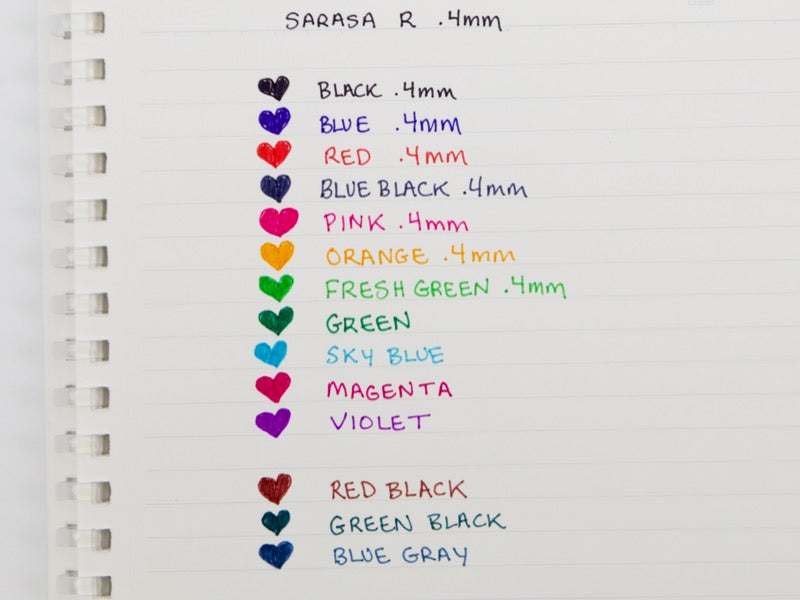 Date
SARASA R .4mm
BLACK .4mm
BLUE .4mm
RED .4mm
BLUE BLACK .4mm
PINK .4mm
ORANGE .4mm
FRESH GREEN .4mm
GREEN
SKY BLUE
MAGENTA
VIOLET
RED BLACK
GREEN BLACK
BLUE GRAY